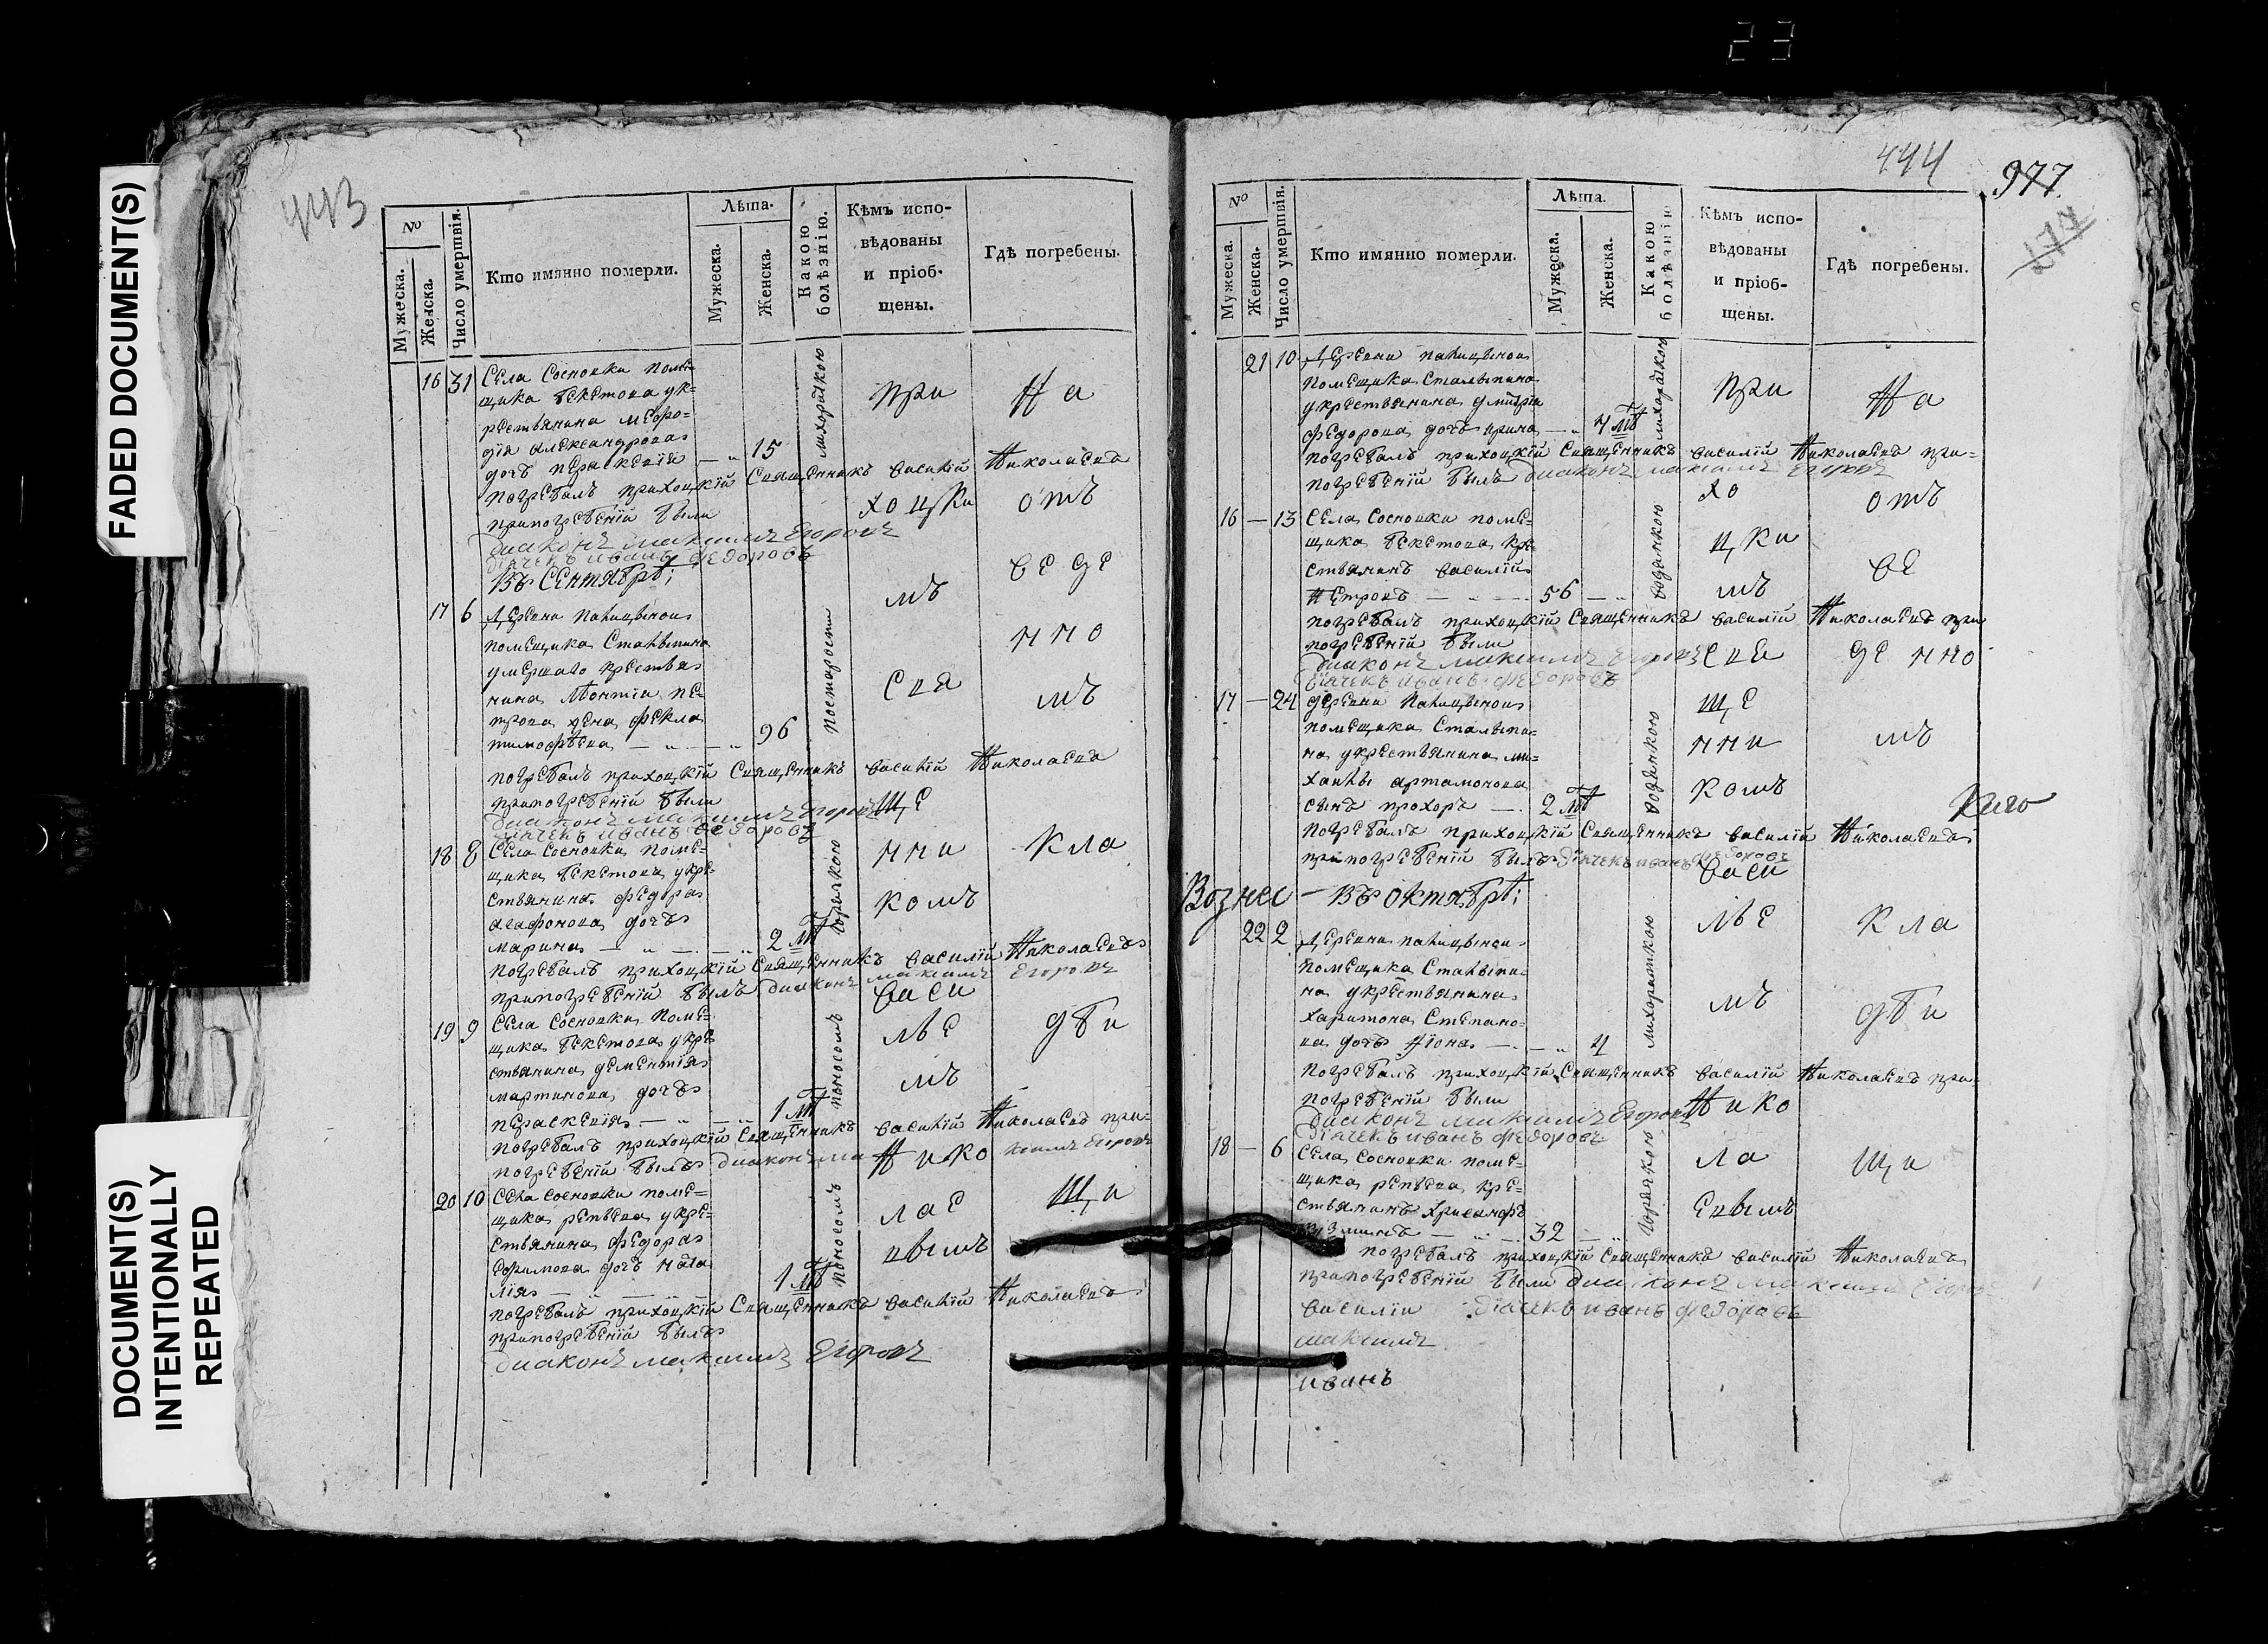 23
FADED DOCUMENT(S)
DOCUMENT(S)
INTENTIONALLY
REPEATED
443
№
Мужеска.
Женска.
Число умершвія.
Кто имянно померли.
Лѣта.
Мужеска.
Женска.
Какою
болѣзнію.
Кѣмъ испо-
вѣдованы
и пріоб-
щены.
Гдѣ погребены.
16 31 Села Сосновки поме-
щика Бекетова ук-
рестьянина Мефо-
дія Александрова
дочь Перасковія — 15 лихорадкою
погребалъ приходцкій Священникъ Василій Николаевъ
припогребеній были
диаконъ Максимъ Егоровъ
діячекъ иванъ Федоровъ
Въ Сентябрѣ;
17 6 Деревни
помещика Сталыпина
умершаго крестья
нина Леонтія Пе-
трова жена Фекла
тимофѣева — 96 постарости
погребалъ приходцкій Священникъ Василій Николаевъ
припогребеній были
диаконъ Максимъ Егоровъ
діячекъ иванъ Федоровъ
18 8 Села Сосновки поме-
щика Бекетова укре-
стьянина Федора
Агафонова дочь
Марина — 2 лѣ горячкою
погребалъ приходцкій Священникъ Василій Николаевъ
припогребеній былъ диаконъ Максимъ Егоровъ
19 9 Села Сосновки поме-
щика Бекетова укре-
стьянина Дементія
Мартинова дочь
Перасковія — 1 лѣ поносомъ
погребалъ приходцкій Священникъ Василій Николаевъ при-
погребеній былъ диаконъ Максимъ Егоровъ
20 10 Села Сосновки поме-
щика Репьева укре-
стьянина Федора
Ефимова дочь Ната
лія — 1 лѣ поносомъ
погребалъ приходцкій Священникъ Василій Николаевъ
припогребеній былъ
диаконъ Максимъ Егоровъ
при
хоцки
мъ
Свя
ще
нни
комъ
Васи
лье
мъ
Нико
лае
вымъ
На
отъ
веде
нно
мъ
кла
дби
щи
444
977
277
№
Мужеска.
Женска.
Число умершвія.
Кто имянно померли.
Лѣта.
Мужеска.
Женска.
Какою
болѣзнію
Кѣмъ испо-
вѣдованы
и пріоб-
щены.
Гдѣ погребены.
21 10 Деревни
помещика Сталыпина
укрестьянина Дмитрія
Федорова дочь Ирина — 4 лѣ лихорадкою
погребалъ приходцкій Священникъ Василій Николаевъ при-
погребеній былъ диаконъ Максимъ Егоровъ
16 — 13 Села Сосновки поме-
щика Бекетова кре-
стьянинъ Василій
Петровъ — 56 — водянкою
погребалъ приходцкій Священникъ Василій Николаевъ при
погребеній были
диаконъ Максимъ Егоровъ
діячекъ иванъ Федоровъ
17 — 24 деревни
помещика Сталыпи-
на укрестьянина Ми-
хаилы Артамонова
сынъ Прохоръ — 2 лѣ водянкою
погребалъ приходцкій Священникъ Василій Николаевъ
припогребеній былъ діячекъ иванъ Федоровъ
Вознес — Въ Октябрѣ;
22 2 Деревни
помещика Сталыпи-
на укрестьянина
Харитона Степано-
ва дочь — 4 лихораткою
погребалъ приходцкій Священникъ Василій Николаевъ при-
погребеній были
диаконъ Максимъ Егоровъ
діячекъ иванъ Федоровъ
18 — 6 Села Сосновки поме-
щика Репьева кре-
стьянинъ Хрисанфъ
Кузминъ — 32 — горячкою
погребалъ приходцкій Священникъ Василій Николаевъ
припогребеній были диаконъ Максимъ Егоро
Василіи діячекъ иванъ Федоровъ
максимъ
иванъ
при
хо
цки
мъ
Свя
ще
нни
комъ
Васи
лье
мъ
Нико
ла
евымъ
На
отъ
ве
де нно
мъ
кла
дби
щи